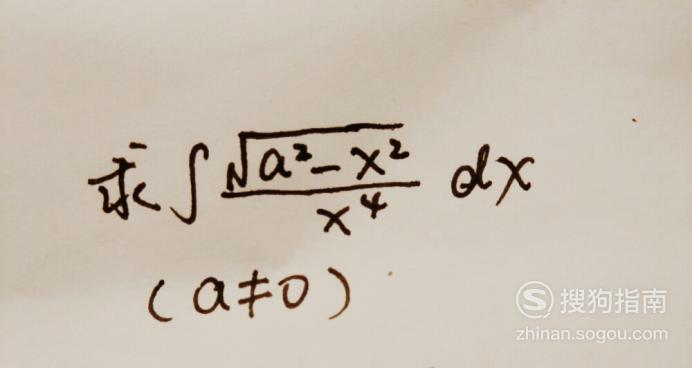 求∫√(a²-x²)/x⁴ dx
(a≠0)
S 搜狗指南
zhinan.sogou.com